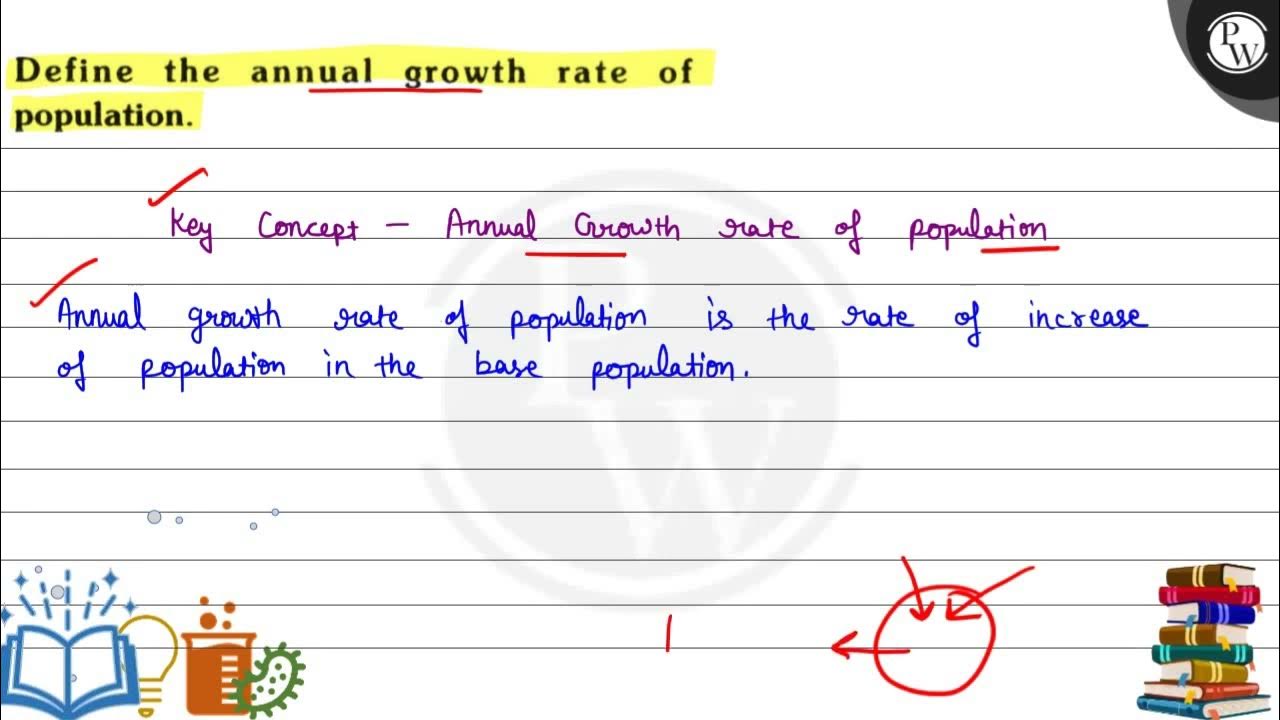 Define the annual growth rate of
population.
Key Concept - Annual Growth rate of population
Annual growth rate of population is the rate of increase
of population in the base population.
PW
PW